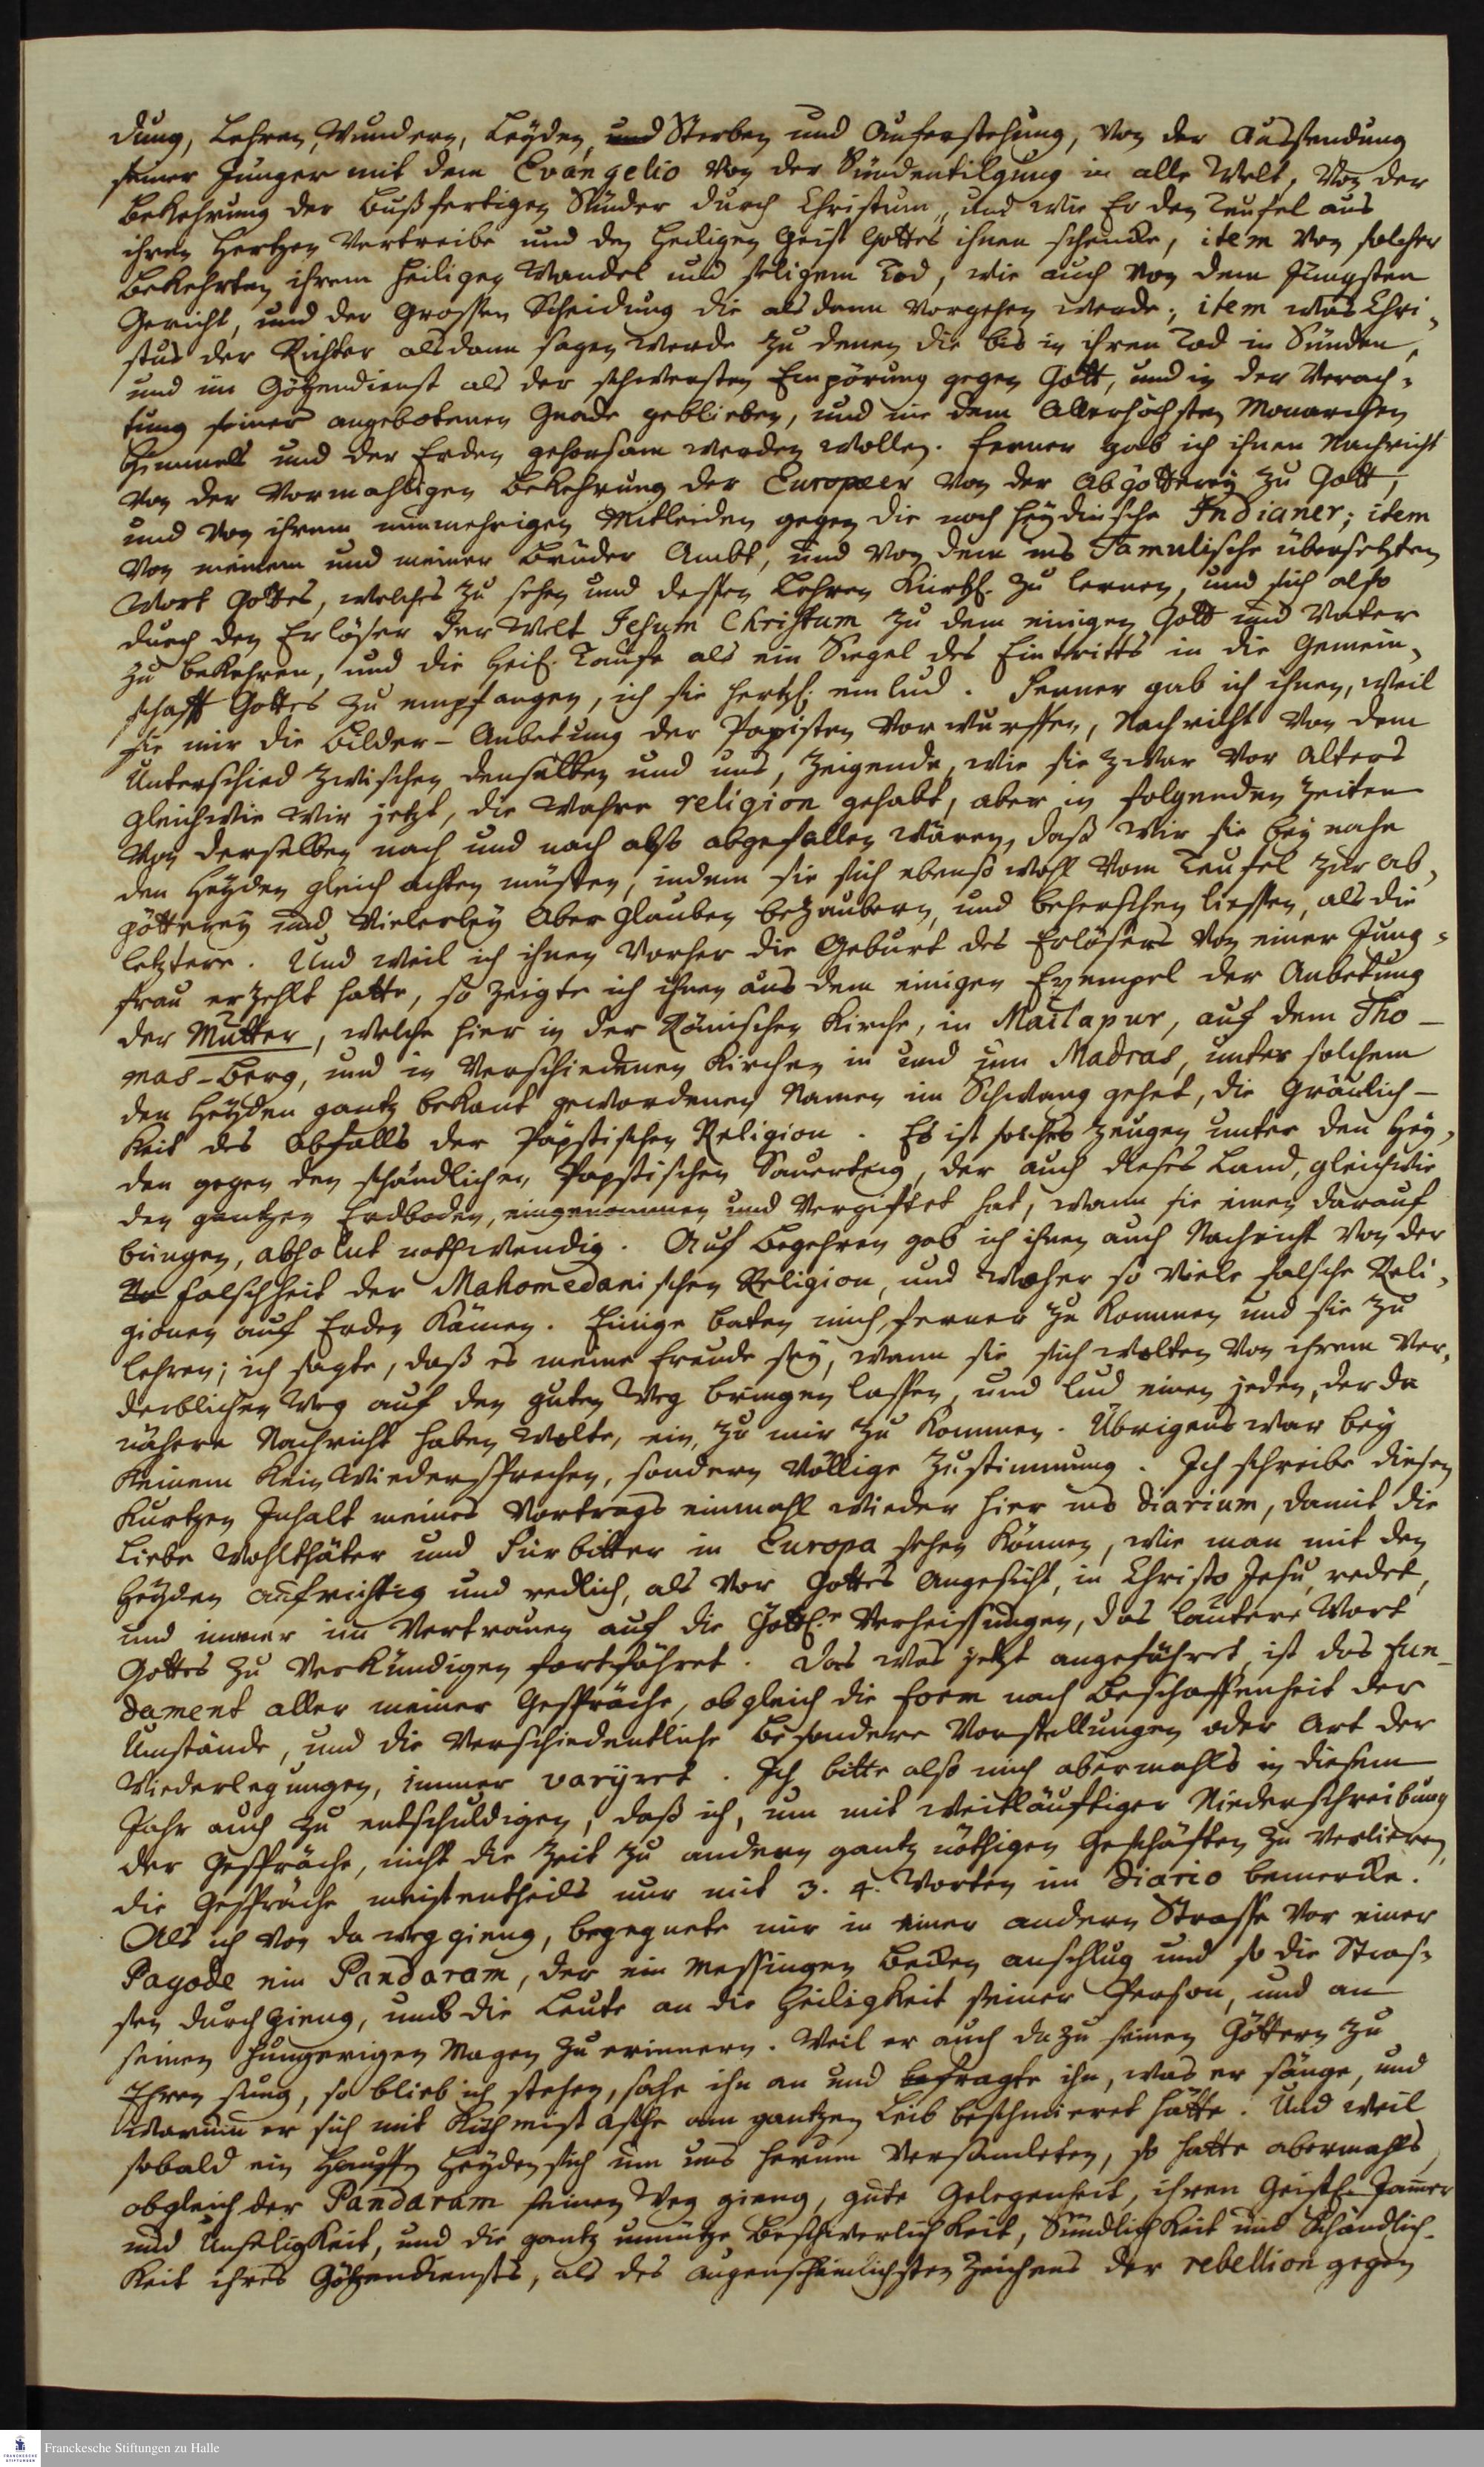 dung, Lehren, Wundern, Leyden, und Sterben und Auferstehung, von der Aussendung
seiner Junger mit dem Evangelio von der Sündentilgung in alle Welt, von der
Bekehrung der bußfertigen Sünder durch Christum, und wie Er den Teufel aus
ihren Hertzen vertreibe und den heiligen Geist Gottes ihnen schencke, item von solcher
Bekehrten ihrem heiligen Wandel und seligem Tod, wie auch von dem Jüngsten
Gericht, und der Grossen Scheidung die alsdann vorgehen werde; item was Chri-
stus der Richter alsdann sagen werde zu denen die bis in ihren Tod in Sünden,
und im Götzendienst als der schwersten Empörung gegen Gott, und in der Verach-
tung seiner angebotenen Gnade geblieben, und nie dem Allerhöchsten Monarchen
Himmels und der Erden gehorsam werden wollen. Ferner gab ich ihnen Nachricht
von der vormahligen Bekehrung der Europæer von der Abgötterey zu Gott,
und von ihrem nunmehrigen Mitleiden gegen die noch heydnische Indianer; item
von meinem und meiner Brüder Ambt, und von dem ins Tamulische übersetzten
Wort Gottes, welches zu sehen und dessen Lehren kürtzl. zu lernen, und sich also
durch den Erlöser der Welt Jesum Christum zu dem einigen Gott und Vater
zu bekehren, und die heil. Taufe als ein Siegel des Eintritts in die Gemein-
schafft Gottes zu empfangen, ich sie hertzl. einlud. Ferner gab ich ihnen, weil
sie mir die Bilder-Anbetung der Papisten vorwurffen, Nachricht von dem
Unterschied zwischen denselben und uns, zeigende, wie sie zwar vor Alters
gleichwie wir jetzt, die wahre religion gehabt, aber in folgenden Zeiten
von derselben nach und nach also abgefallen wären, daß wir sie bey nahe
den Heyden gleich achten müsten, indem sie sich ebenso wohl vom Teufel zur Ab-
götterey und vielerley Aberglauben bezaubern, und beherschen liessen, als die
letztere. Und weil ich ihnen vorher die Geburt des Erlösers von einer Jung-
frau erzehlt hatte, so zeigte ich ihnen aus dem einigen Exempel der Anbetung
der Mutter, welche hier in der Römischen Kirche, in Mailapur, auf dem Tho-
mas-Berg, und in verschiedenen Kirchen in und um Madras, unter solchem
den Heyden gantz bekant gewordenen Namen im Schwang gehet, die Gräulich-
keit des Abfalls der Päpstischen Religion. Es ist solches Zeugen unter den Hey-
den gegen den schändlichen Papstischen Sauerteig, der auch dieses Land, gleichwie
den gantzen Erdboden, eingenommen und vergiftet hat, wann sie einen darauf
bringen, absolut nothwendig. Auf Begehren gab ich ihnen auch Nachricht von der
Falschheit der Mahomedanischen Religion, und woher so viele falsche Reli-
gionen auf Erden kämen. Einige baten mich, ferner zu kommen und sie zu
lehren; ich sagte, daß es meine Freude sey, wann sie sich wolten von ihrem ver-
derblichen Weg auf den guten Weg bringen lassen, und lud einen jeden, der da
nähere Nachricht haben wolte, ein, zu mir zu kommen. Übrigens war bey
keinem kein Wiedersprechen, sondern völlige Zustimmung. Ich schreibe diesen
kurtzen Inhalt meines Vortrags einmahl wieder hier ins Diarium, damit die
liebe Wohlthäter und Fürbitter in Europa sehen können, wie man mit den
Heyden aufrichtig und redlich, als vor Gottes Angesicht, in Christo Jesu, redet,
und immer im Vertrauen auf die Göttl.n Verheissungen, das lautere Wort
Gottes zu verkündigen fortfähret. Das was jetzt angeführet ist das Fun-
dament aller meiner Gespräche, obgleich die Form nach Beschaffenheit der
Umstände, und die verschiedentliche besondere Vorstellungen oder Art der
Wiederlegungen, immer varyret. Ich bitte also mich abermahls in diesem
Jahr auch zu entschuldigen, daß ich, um mit weitläuftiger Niederschreibung
der Gespräche, nicht die Zeit zu andern gantz nöthigen Geschäften zu verlieren,
die Gespräche meistentheils nur mit 3. 4. Worten im Diario bemercke.
Als ich von da weg gieng, begegnete mir in einer andern Strasse vor einer
Pagode ein Pandaram, der ein messingen Becken anschlug und so die Stras-
sen durch gieng, umb die Leute an die Heiligkeit seiner Person, und an
seinen hungerigen Magen zu erinnern. Weil er auch dazu seinen Göttern zu
Ehren sung, so blieb ich stehen, sahe ihn an und befragte ihn, was er sänge, und
warum er sich mit Kühmist Asche am gantzen Leib beschmieret hätte. Und weil
sobald ein Hauffen Heyden sich um uns herum versamleten, so hatte abermahls,
obgleich der Pandaram seinen Weg gieng, gute Gelegenheit, ihren Geistl. Jam̄er
und Unseligkeit, und die gantz unnütze Beschwerlichkeit, Sündlichkeit und Schändlich-
keit ihres Götzendiensts, als des augenscheinlichsten Zeichens der rebellion gegen
Franckesche Stiftungen zu Halle